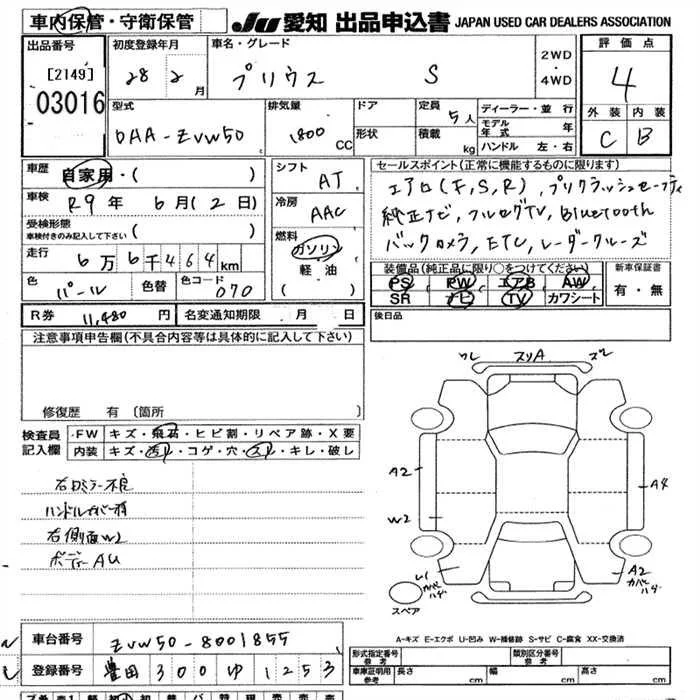 車内保管・守衛保管
JU 愛知 出品申込書 JAPAN USED CAR DEALERS ASSOCIATION
出品番号 初度登録年月 車名・グレード 2WD 評価点
[2149] 28年 2月 プリウス S ・4WD 4
03016
型式 排気量 ドア 定員 5人 ディーラー・並行 外装 内装
DAA-ZVW50 1800CC 形状 積載 kg モデル年式 年 C B
ハンドル 左・右
車歴 自家用・( ) シフト AT セールスポイント(正常に機能するものに限ります)
車検 R9年 6月(2日) 冷房 AAC エアロ(F,S,R), プリクラッシュセーフティ
受検形態 ( ) 純正ナビ, フルセグTV, Bluetooth
車検付きのみ記入して下さい
燃料 ガソリン バックカメラ, ETC, レーダークルーズ
走行 6万6千464km 軽油 装備品(純正品に限り○をつけてください) 新車保証書
色 パール 色替 色コード 070 ( ) PS PW エアB AW 有・無
SR ナビ TV カワシート
R券 11,480円 名変通知期限 月 日 後日品
注意事項申告欄(不具合内容等は具体的に記入して下さい)
修復歴 有 〔箇所 〕
検査員記入欄 FW キズ・飛石・ヒビ割・リペア跡・X要
内装 キズ・汚れ・コゲ・穴・スレ・キレ・破し
右ドミラー不良
ハンドルカバー有
右側面W2
ボデーAU
ワレ スリA ズレ
A2 A4
W2
U1 カバーハゲ A2 カバーハゲ
スペア
A-キズ E-エクボ U-凹み W-補修跡 S-サビ C-腐食 XX-交換済
車台番号 ZVW50-8001855
登録番号 豊田 300 ゆ 1253
形式指定番号 参考 類別区分番号 参考
車庫証明用参考 長さ cm 幅 cm 高さ cm